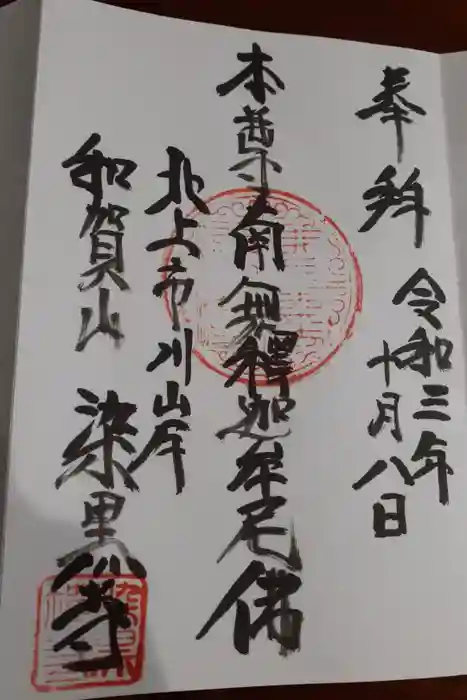 奉拜
令和三年
十月八日
本尊 南無釋迦牟尼佛
北上市川岸
和賀山 染黒寺